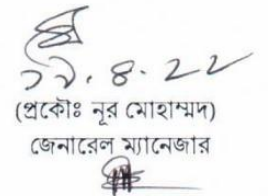 ১৯.৪.২২
(প্রকৌঃ নূর মোহাম্মদ)
জেনারেল ম্যানেজার